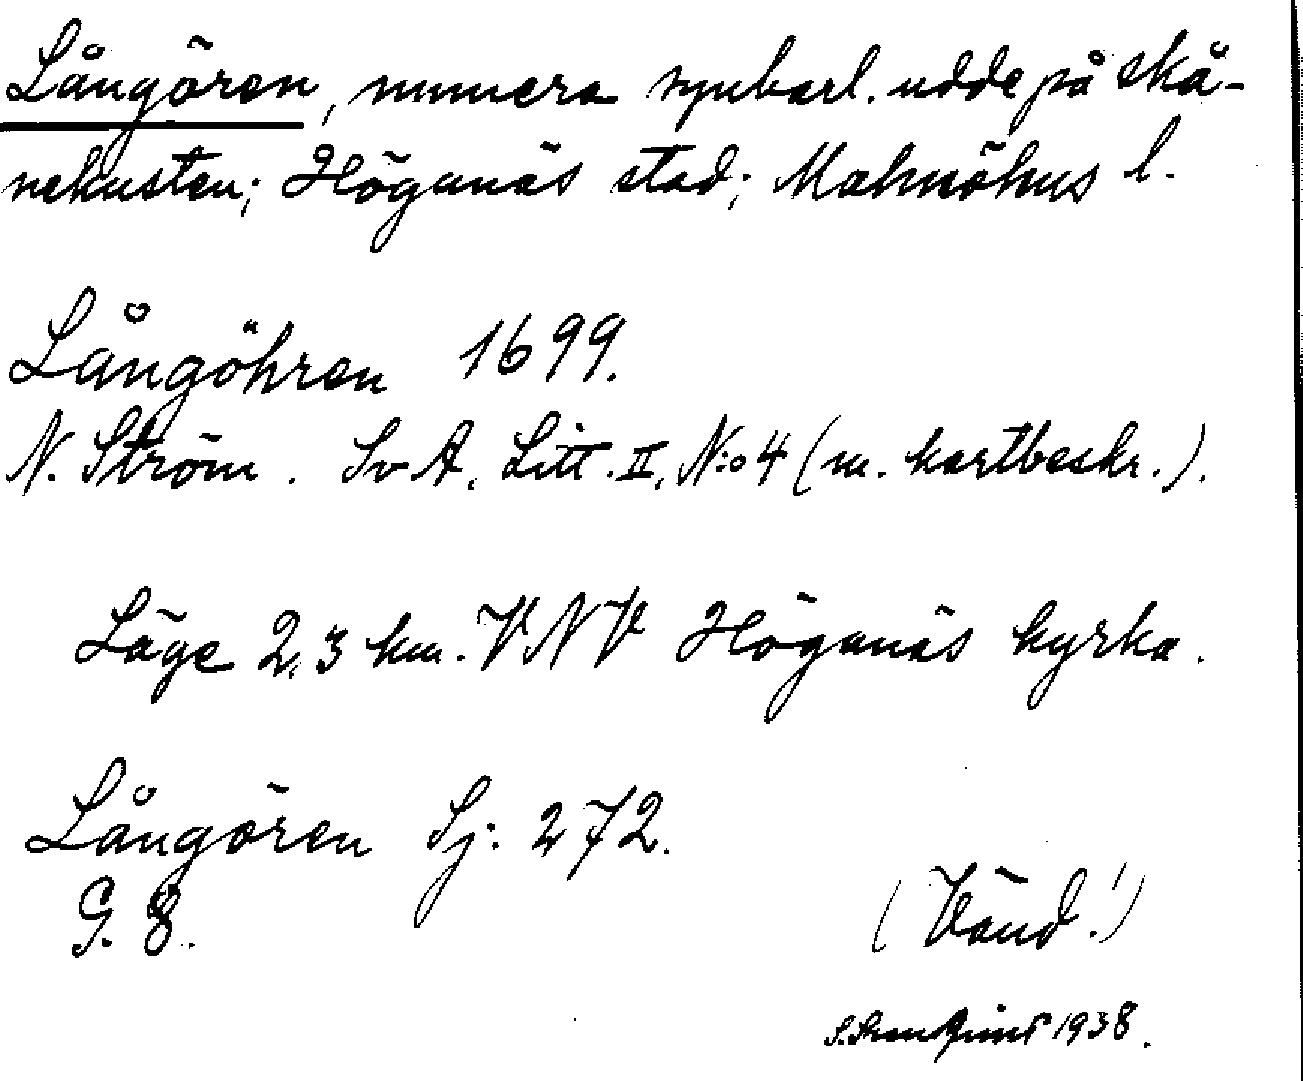 Långören, numera synbarl. udde på skå-
nekusten; Höganäs stad; Malmöhus l.
Långöhren 1699.
N. Ström. Sv A, Litt. II, N:o 4 (m. kartbeskr.).
Läge 2,3 km. VNV Höganäs kyrka.
Långören Sj: 272.
G. 8.
(Vänd!)
1938.